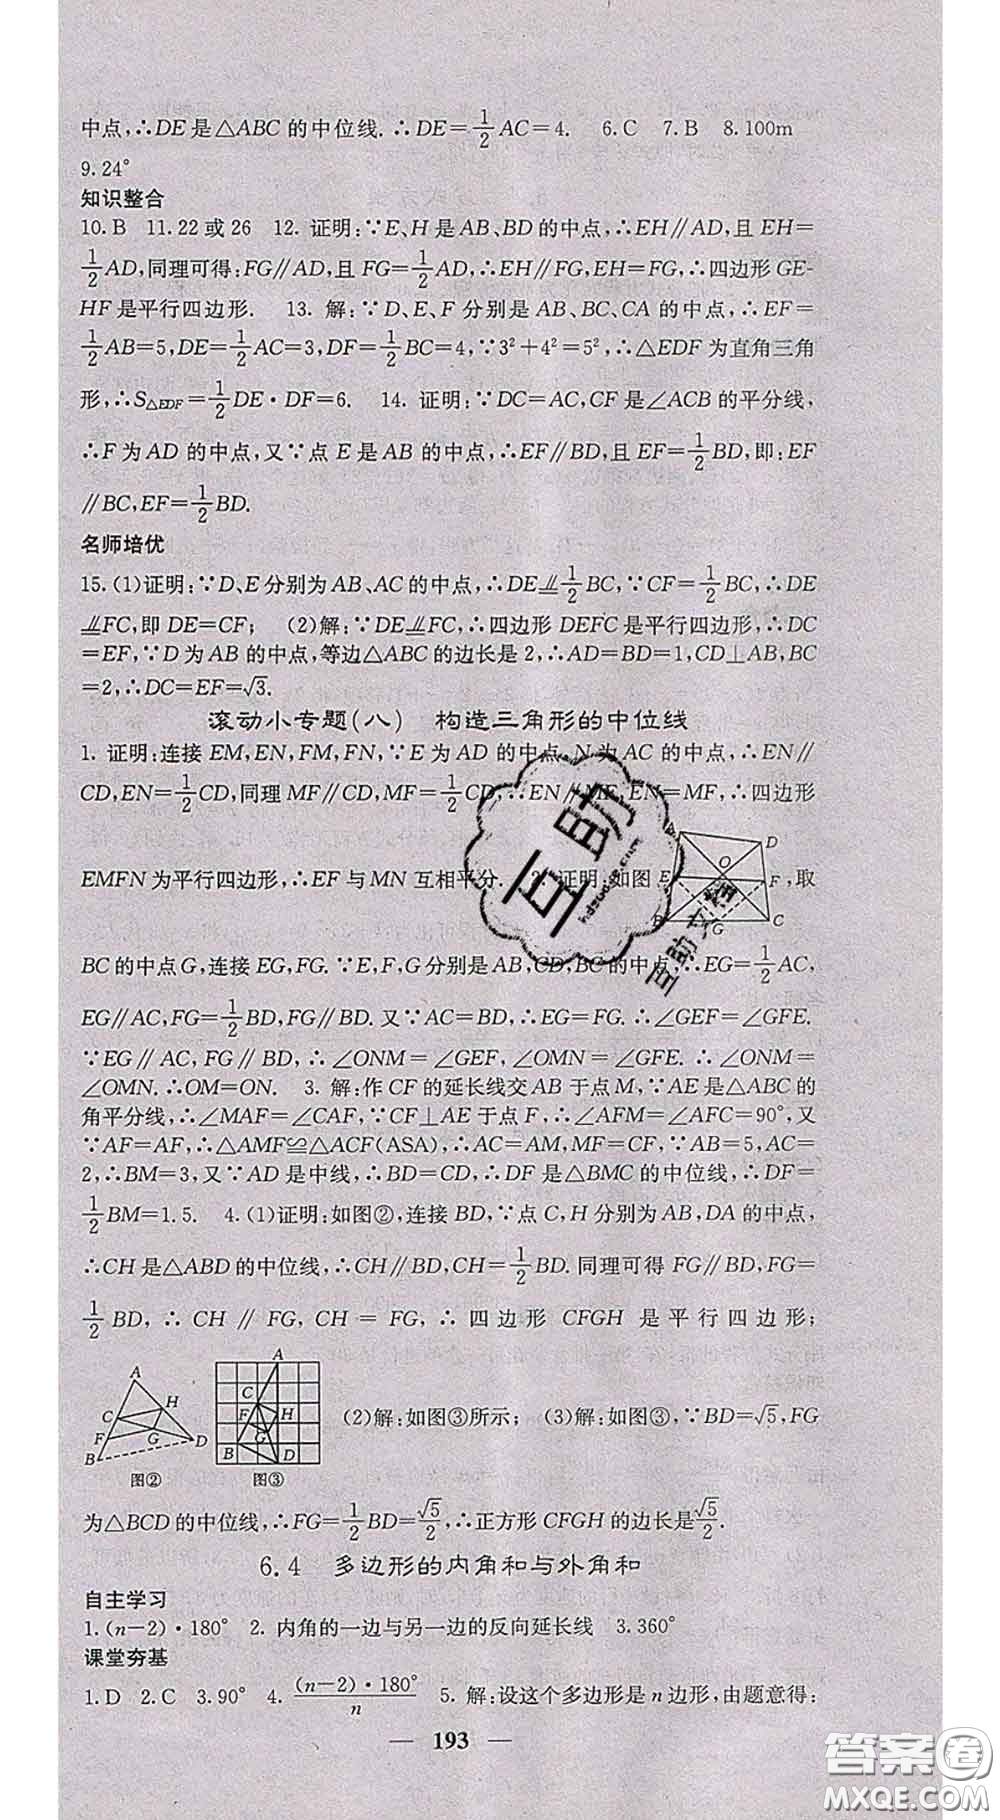 中点,∴DE是△ABC的中位线.∴DE=1/2AC=4. 6.C 7.B 8.100m
9.24°
知识整合
10.B 11.22或26 12.证明:∵E、H是AB、BD的中点,∴EH∥AD,且EH=
1/2AD,同理可得:FG∥AD,且FG=1/2AD,∴EH∥FG,EH=FG,∴四边形GE-
HF是平行四边形. 13.解:∵D、E、F分别是AB、BC、CA的中点,∴EF=
1/2AB=5,DE=1/2AC=3,DF=1/2BC=4,∵3²+4²=5²,∴△EDF为直角三角
形,∴S△EDF=1/2DE·DF=6. 14.证明:∵DC=AC,CF是∠ACB的平分线,
∴F为AD的中点,又∵点E是AB的中点,∴EF∥BD,且EF=1/2BD,即:EF
∥BC,EF=1/2BD.
名师培优
15.(1)证明:∵D、E分别为AB、AC的中点,∴DE⫫1/2BC,∵CF=1/2BC,∴DE
⫫FC,即DE=CF; (2)解:∵DE⫫FC,∴四边形DEFC是平行四边形,∴DC
=EF,∵D为AB的中点,等边△ABC的边长是2,∴AD=BD=1,CD⊥AB,BC
=2,∴DC=EF=√3.
滚动小专题(八) 构造三角形的中位线
1.证明:连接EM,EN,FM,FN,∵E为AD的中点,N为AC的中点,∴EN∥
CD,EN=1/2CD,同理MF∥CD,MF=1/2CD,∴EN∥MF,EN=MF,∴四边形
EMFN为平行四边形,∴EF与MN互相平分. 2.证明:如图,取
D
O
E F
B G C
BC的中点G,连接EG,FG.∵E,F,G分别是AB,CD,BC的中点,∴EG=1/2AC,
EG∥AC,FG=1/2BD,FG∥BD.又∵AC=BD,∴EG=FG.∴∠GEF=∠GFE.
∵EG∥AC,FG∥BD,∴∠ONM=∠GEF,∠OMN=∠GFE.∴∠ONM=
∠OMN.∴OM=ON. 3.解:作CF的延长线交AB于点M,∵AE是△ABC的
角平分线,∴∠MAF=∠CAF,∵CF⊥AE于点F,∴∠AFM=∠AFC=90°,又
∵AF=AF,∴△AMF≌△ACF(ASA),∴AC=AM,MF=CF,∵AB=5,AC=
2,∴BM=3,又∵AD是中线,∴BD=CD,∴DF是△BMC的中位线,∴DF=
1/2BM=1.5. 4.(1)证明:如图②,连接BD,∵点C,H分别为AB,DA的中点,
∴CH是△ABD的中位线,∴CH∥BD,CH=1/2BD.同理可得FG∥BD,FG=
1/2BD,∴CH∥FG,CH=FG,∴四边形CFGH是平行四边形;
A
C H
F G
B D
图②
A
C
F H
G
B D
图③
(2)解:如图③所示; (3)解:如图③,∵BD=√5,FG
为△BCD的中位线,∴FG=1/2BD=√5/2,∴正方形CFGH的边长是√5/2.
6.4 多边形的内角和与外角和
自主学习
1.(n-2)·180° 2.内角的一边与另一边的反向延长线 3.360°
课堂夯基
1.D 2.C 3.90° 4.(n-2)·180°/n 5.解:设这个多边形是n边形,由题意得:
— 193 —
互助
互助文档
答案圈
MXQE.COM